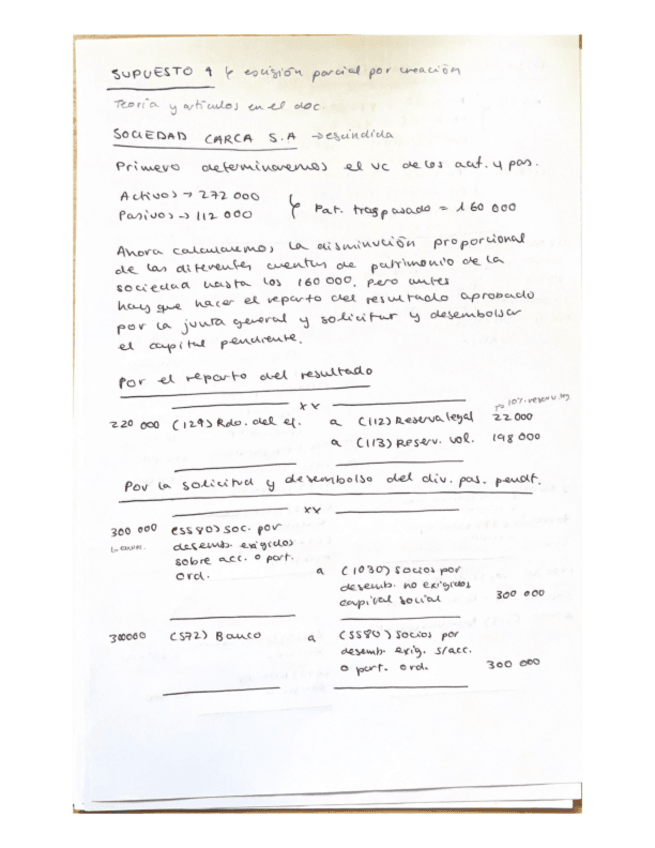 SUPUESTO 1 ↳ escisión parcial por creación
Teoría y artículos en el doc.
SOCIEDAD CARCA S.A → escindida
Primero determinaremos el VC de los act. y pas.
Activos → 272 000
Pasivos → 112 000 ↳ Pat. traspasado = 160 000
Ahora calcularemos la disminución proporcional
de las diferentes cuentas de patrimonio de la
sociedad hasta los 160 000, pero antes
hay que hacer el reparto del resultado aprobado
por la junta general y solicitar y desembolsar
el capital pendiente.
Por el reparto del resultado
xx → 10% reserv. leg
220 000 (129) Rdo. del ej. a (112) Reserva legal 22 000
a (113) Reserv. vol. 198 000
Por la solicitud y desembolso del div. pas. pendt.
xx
300 000 (5580) soc. por
desemb. exigidos
sobre acc. o part.
ord.
a (1030) socios por
desemb. no exigidos
capital social 300 000
300000 (572) Banco a (5580) socios por
desemb. exig. s/acc.
o part. ord. 300 000